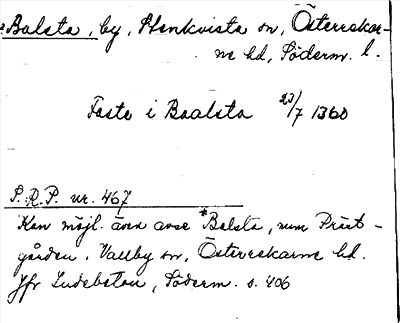 *Balsta, by, Stenkvista sn, Österrekar-
ne hd, Söderm. l.
Faste i Baalsta 23/7 1360
S.R.P. nr. 467
Kan möjl. även avse *Balsta, num Präst-
gården, Vallby sn, Österrekarne hd.
Jfr Lindebeton, Söderm. s. 406